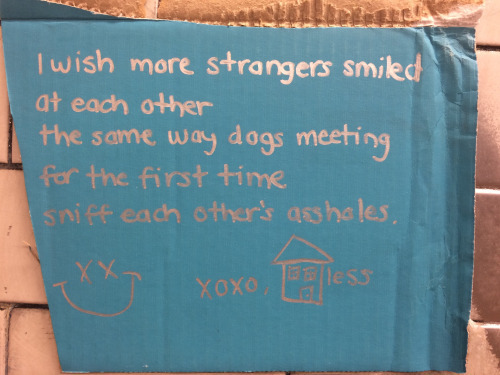 I wish more strangers smiled
at each other
the same way dogs meeting
for the first time
sniff each other's assholes.
xoxo, less